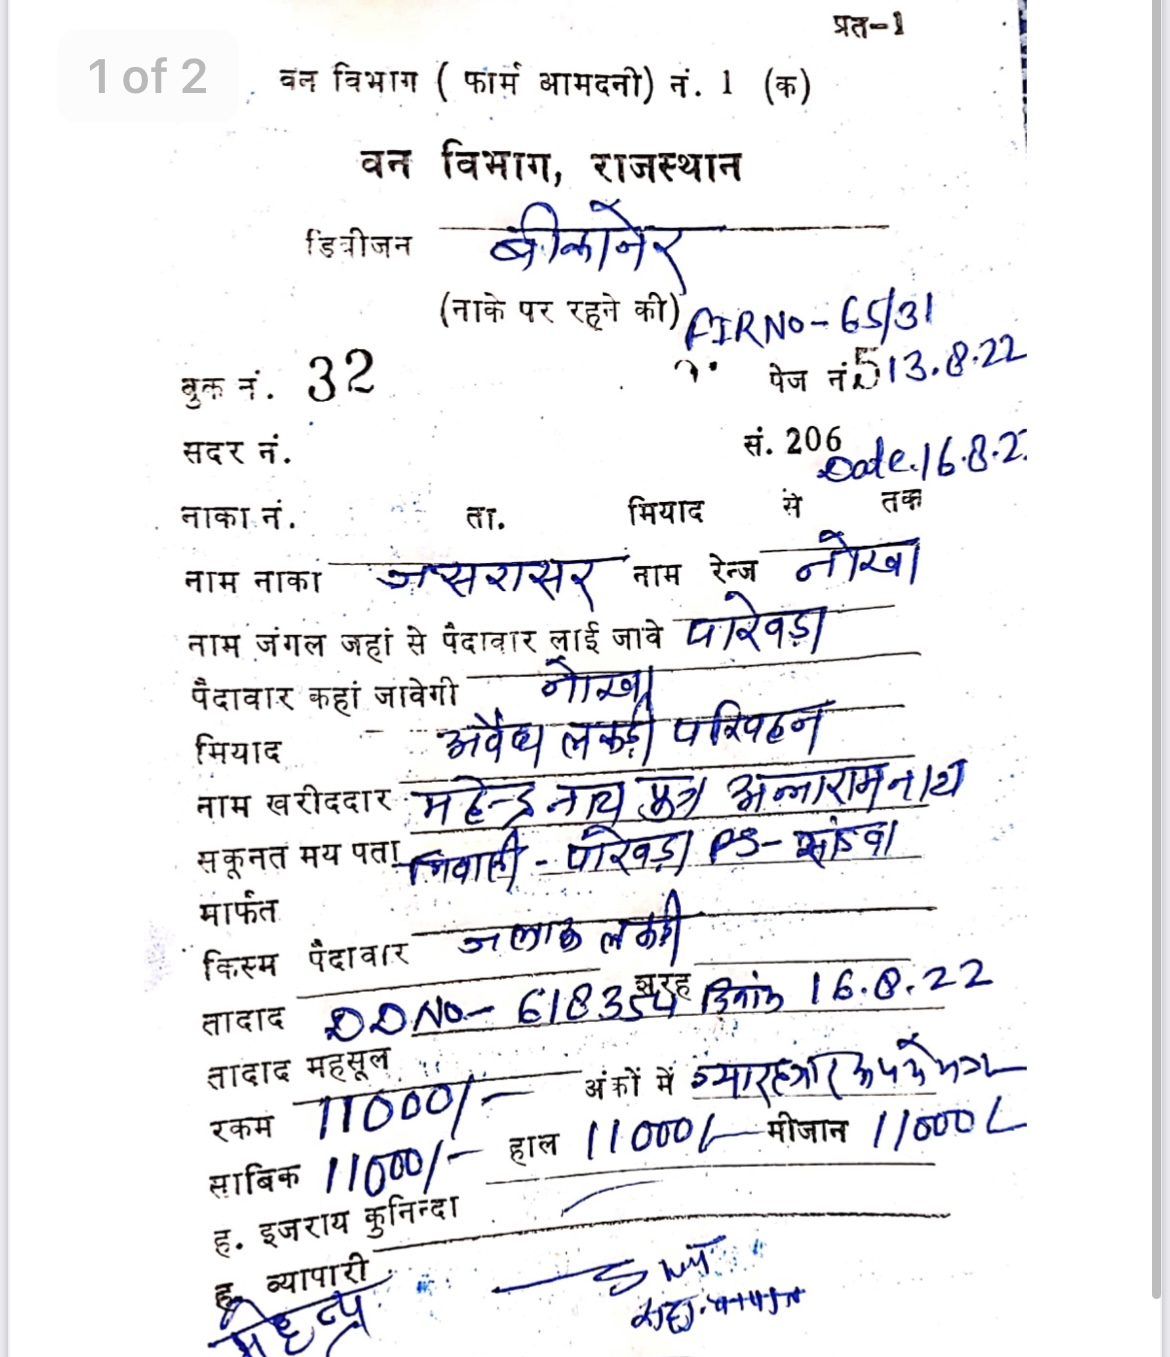 प्रत-1
1 of 2
वन विभाग ( फार्म आमदनी) नं. 1 (क)
वन विभाग, राजस्थान
डिवीजन बीकानेर
(नाके पर रहने की) FIR NO- 65/31
बुक नं. 32 पेज नं. 5 13.8.22
सदर नं. सं. 206
Date.16.8.2
नाका नं. ता. मियाद से तक
नाम नाका जसरासर नाम रेन्ज नोखा
नाम जंगल जहां से पैदावार लाई जावे पारेवड़ा
पैदावार कहां जावेगी नोखा
मियाद अवैध लकड़ी परिवहन
नाम खरीददार महेन्द्र नाथ पुत्र अन्नाराम नाथ
सकूनत मय पता निवासी - पारेवड़ा PS- सांडवा
मार्फत
किस्म पैदावार जलाऊ लकड़ी
तादाद DD NO- 618354 शरह दिनांक 16.8.22
तादाद महसूल
रकम 11000/- अंकों में
साबिक 11000/- हाल 11000/- मीजान 11000/-
ह. इजराय कुनिन्दा
ह. व्यापारी
महेन्द्र